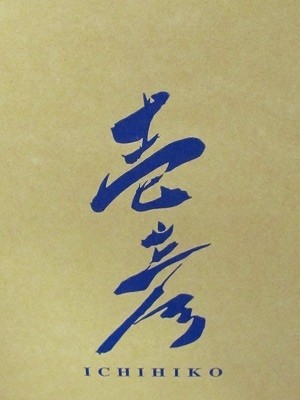 壱彦
ICHIHIKO